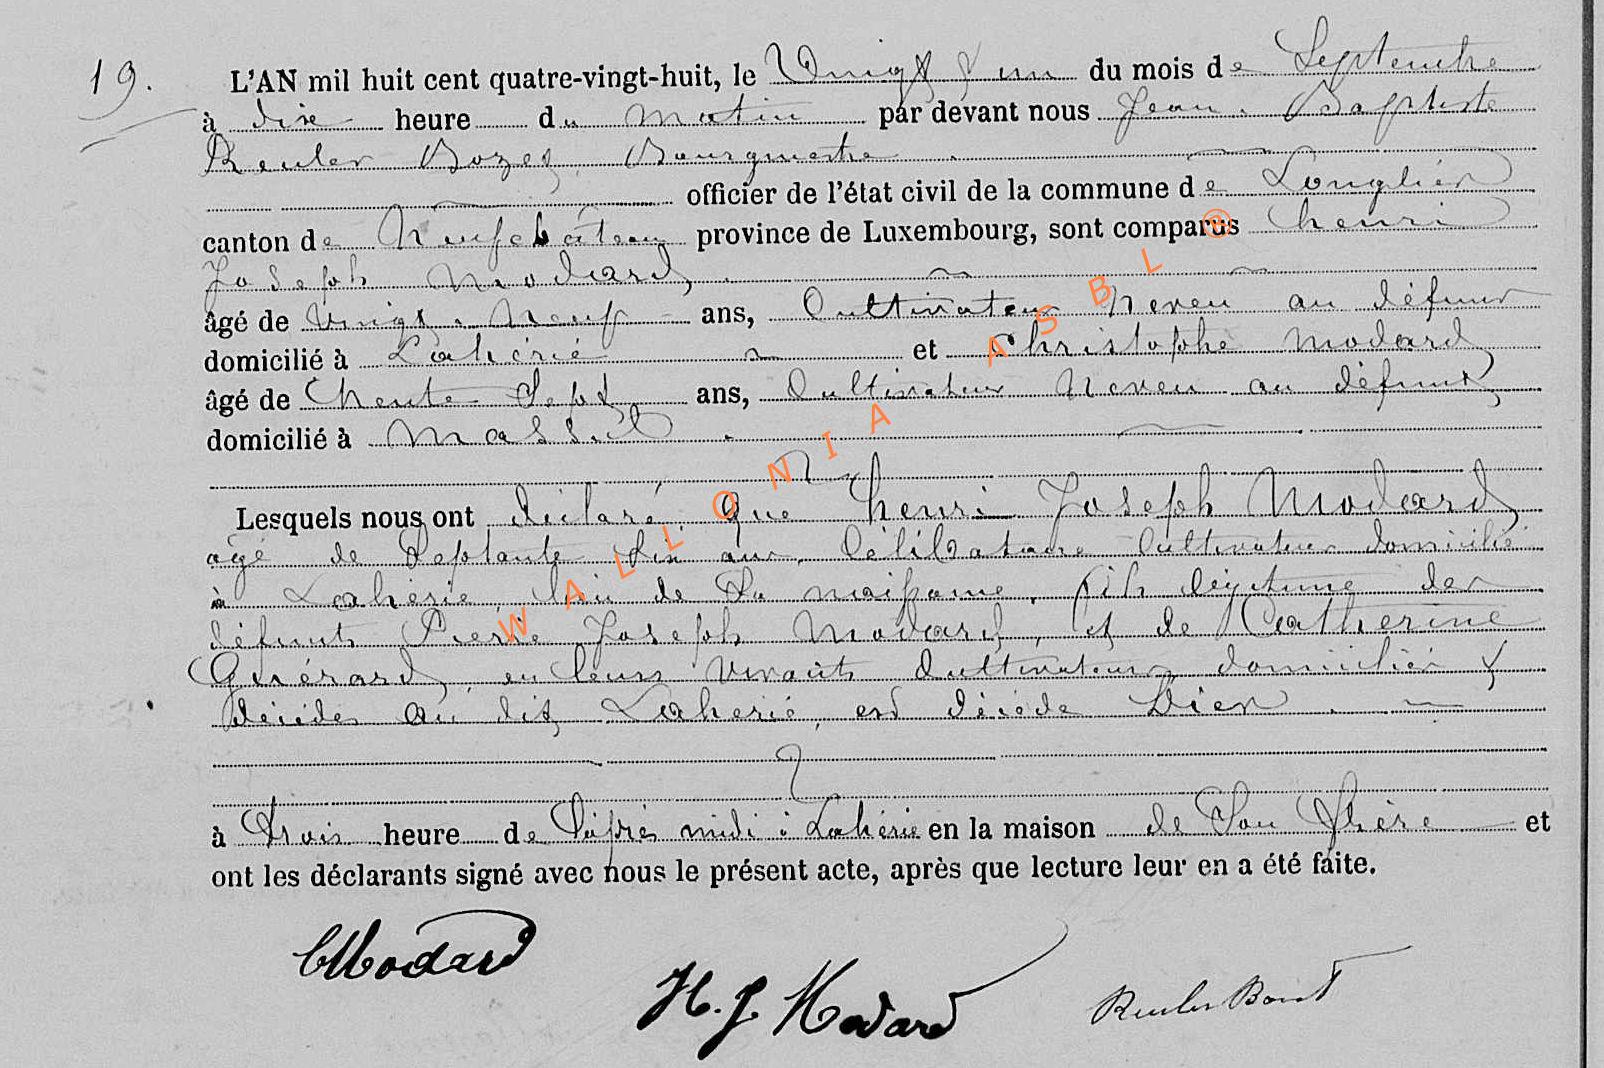 19.
L'AN mil huit cent quatre-vingt-huit, le Vingt & un du mois de Septembre
à dix heure du matin par devant nous Jean Baptiste
Reuler Bozet, Bourgmestre
officier de l'état civil de la commune de Longlier
canton de Neufchâteau province de Luxembourg, sont comparus henri
Joseph Modard,
âgé de Vingt Neuf ans, Cultivateur Neveu au défunt
domicilié à Lahérie et Christophe Modard
âgé de trente Sept ans, Cultivateur Neveu au défunt,
domicilié à Massul
Lesquels nous ont déclaré que henri Joseph Modard,
agé de Septante Six ans, Célibataire Cultivateur domicilié
à Lahérie, lieu de Sa naissance, fils légitime des
défunts Pierre Joseph Modard, et de Catherine
Guérard, en leurs vivants Cultivateurs domiciliés &
décédés au dit Laherie, est décédé hier
à trois heure de l'après midi à Lahérie en la maison de Son frère et
ont les déclarants signé avec nous le présent acte, après que lecture leur en a été faite.
CModard
H. J. Modard
WALLONIA ASBL @